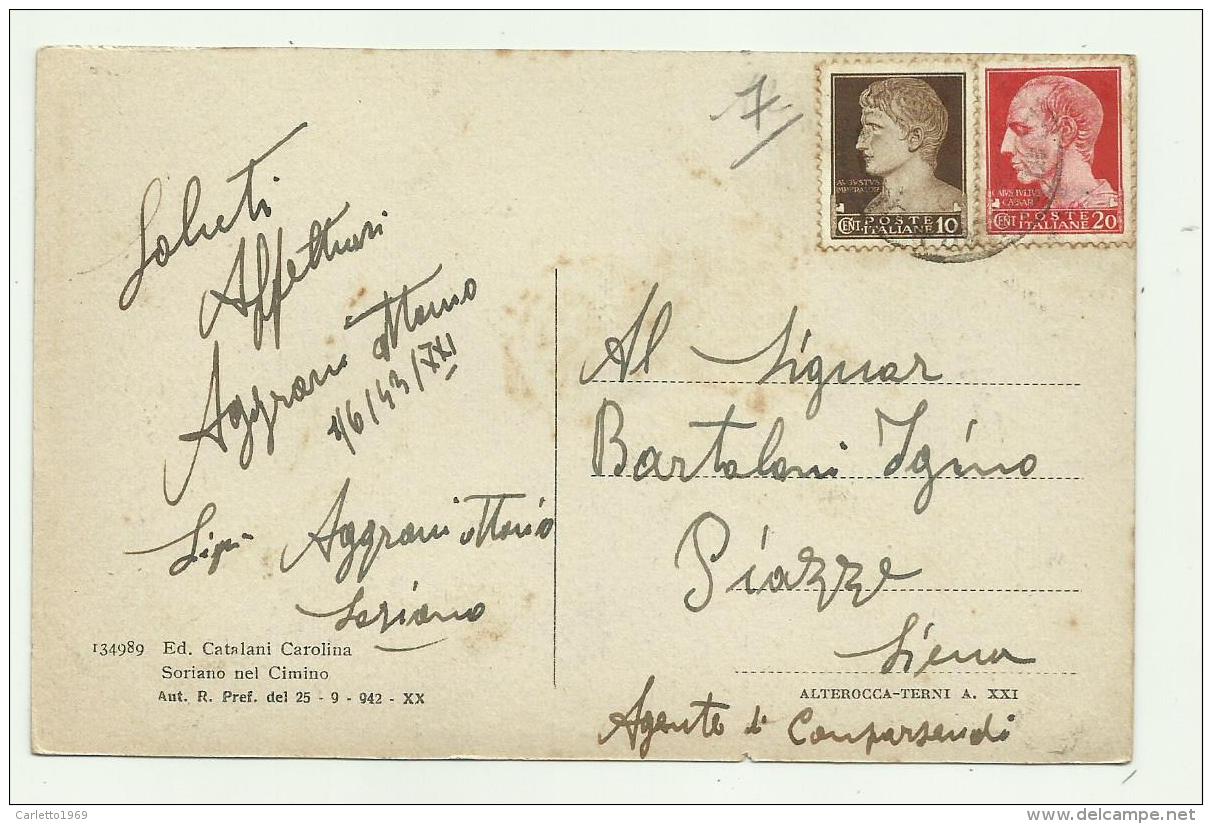 7
Saluti
Affettuosi
Aggravi Mario
1/6/43/XXI
Aggravi Mario
Soriano
134989 Ed. Catalani Carolina
Soriano nel Cimino
Aut. R. Pref. del 25 - 9 - 942 - XX
AVGVSTVS
IMPERATOR
CENT. POSTE ITALIANE 10
CAIVS IVLIVS
CAESAR
CENT. POSTE ITALIANE 20
Al Signor
Bartoloni Igino
Piazze
Siena
ALTEROCCA-TERNI A. XXI
Agente di
Carletto1969
delcampe.net